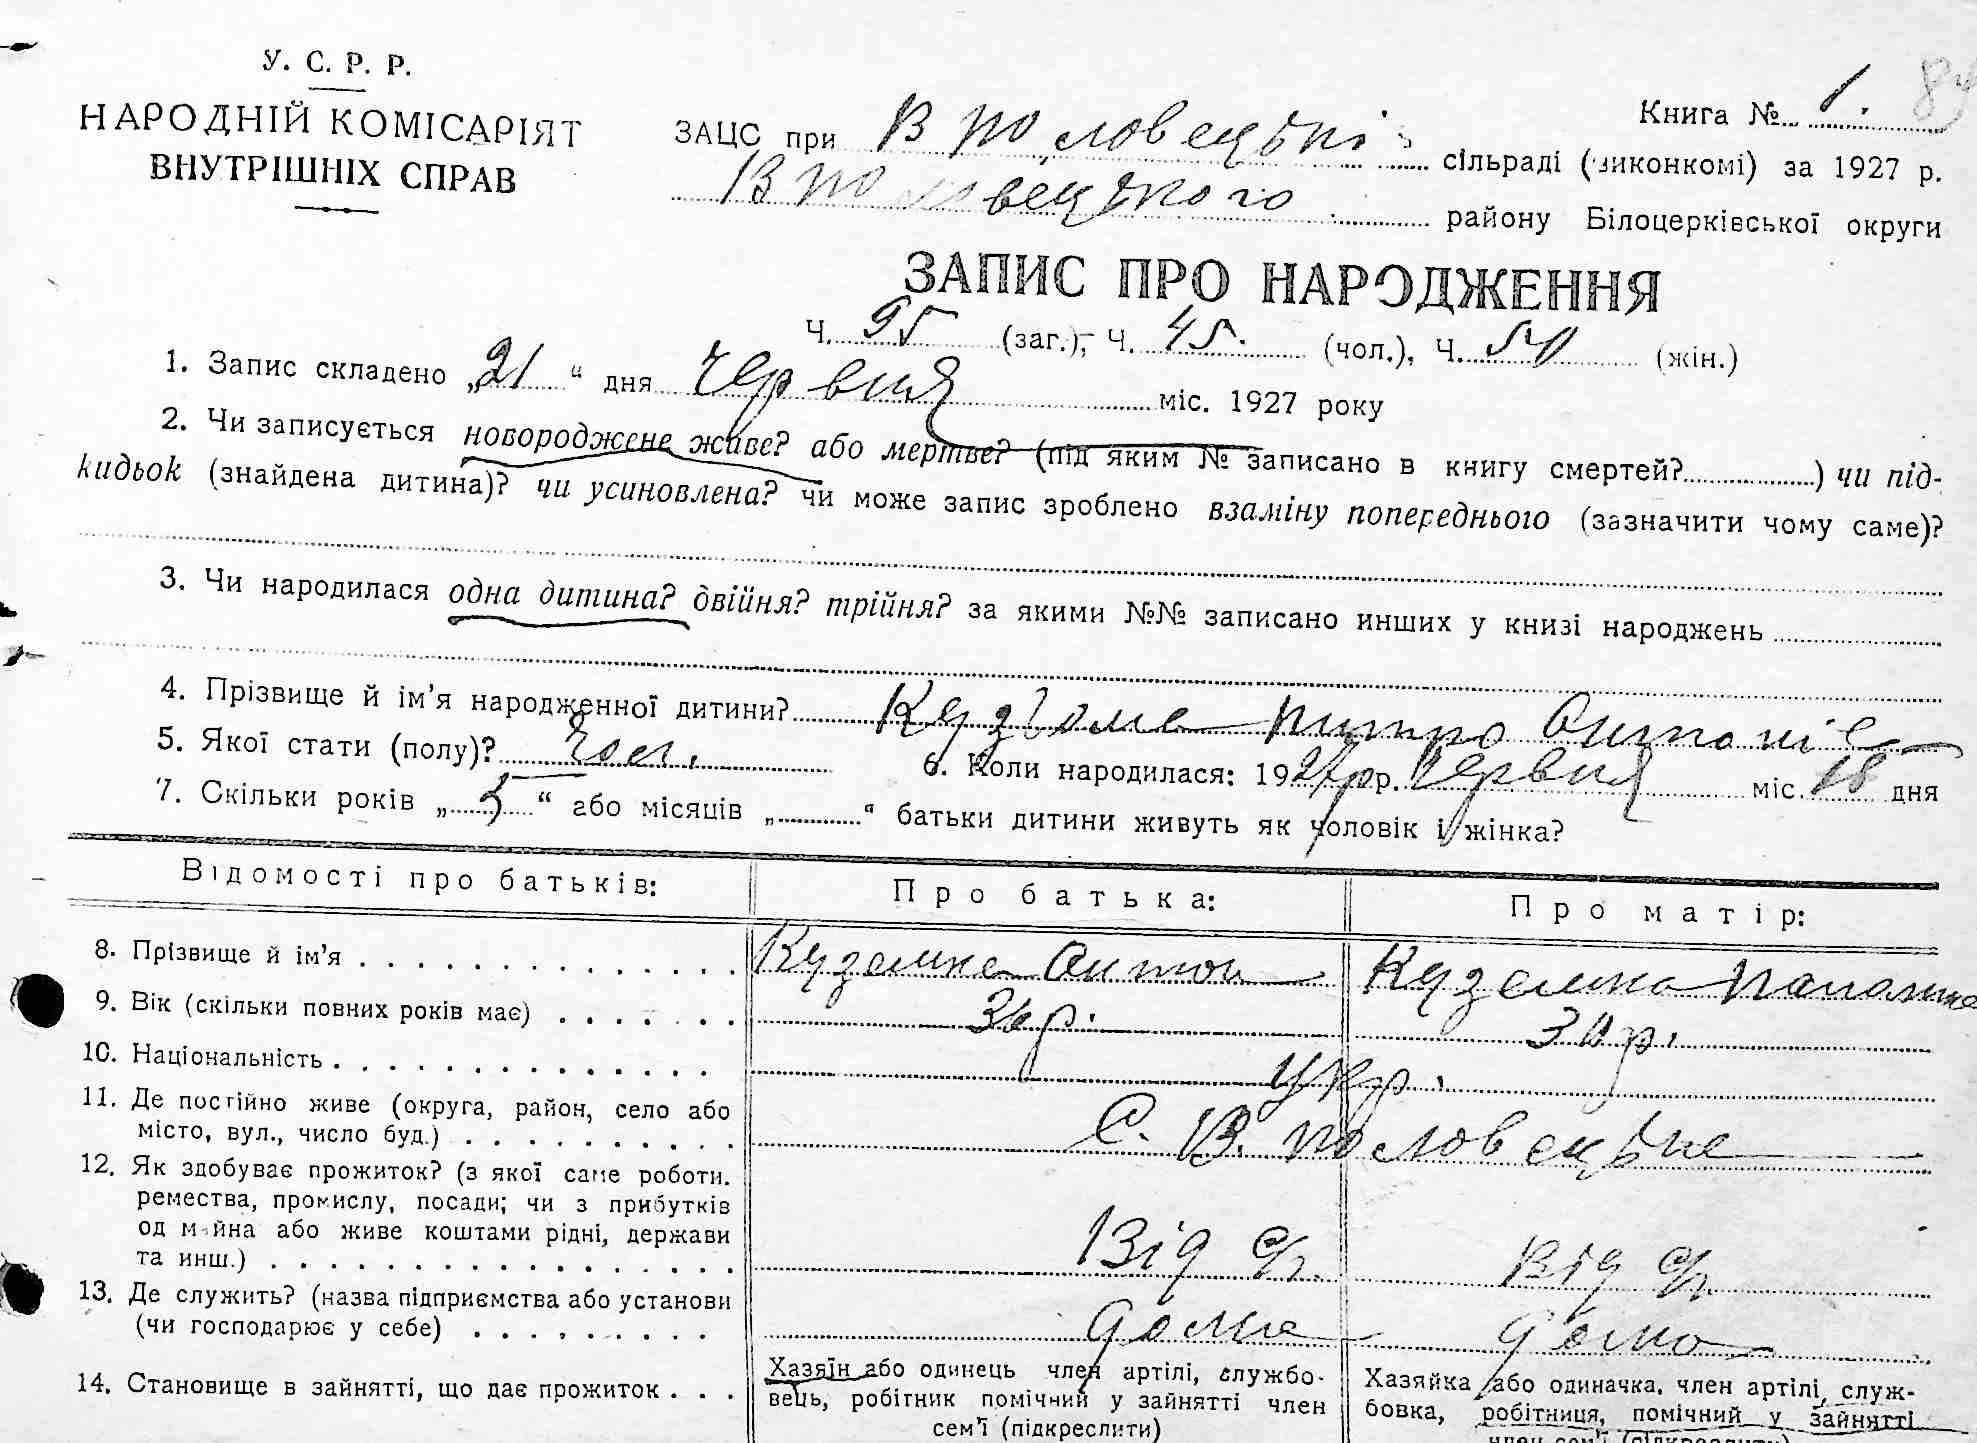 У. С. Р. Р.
НАРОДНІЙ КОМІСАРІЯТ
ВНУТРІШНІХ СПРАВ
Книга № 1.
ЗАЦС при В Половецькій сільраді (виконкомі) за 1927 р.
В Половецького району Білоцерківської округи
ЗАПИС ПРО НАРОДЖЕННЯ
Ч. 95 (заг.), Ч. 45. (чол.), Ч. 50 (жін.)
1. Запис складено „21“ дня червня міс. 1927 року
2. Чи записується новороджене живе? або мертве? (під яким № записано в книгу смертей?) чи під-
кидьок (знайдена дитина)? чи усиновлена? чи може запис зроблено взаміну попереднього (зазначити чому саме)?
3. Чи народилася одна дитина? двійня? трійня? за якими №№ записано инших у книзі народжень
4. Прізвище й ім’я народженної дитини? Петро Антонів
5. Якої стати (полу)? чол. 6. Коли народилася: 1927 р. червня міс. 18 дня
7. Скільки років „5“ або місяців „ “ батьки дитини живуть як чоловік і жінка?
Відомості про батьків: Про батька: Про матір:
8. Прізвище й ім’я Куземка Антон Куземка
9. Вік (скільки повних років має) р. 30 р.
10. Національність укр.
11. Де постійно живе (округа, район, село або
місто, вул., число буд.) С. В. Половецьке
12. Як здобуває прожиток? (з якої саме роботи.
ремества, промислу, посади; чи з прибутків
од майна або живе коштами рідні, держави
та инш.) Від с/г. Від с/г.
13. Де служить? (назва підприємства або установи
(чи господарює у себе) дома дома
14. Становище в зайнятті, що дає прожиток
Хазяїн або одинець член артілі, службо-
вець, робітник помічний у зайнятті член
сем’ї (підкреслити)
Хазяйка або одиначка. член артілі, служ-
бовка, робітниця, помічний у зайнятті
член сем’ї (підкреслити)